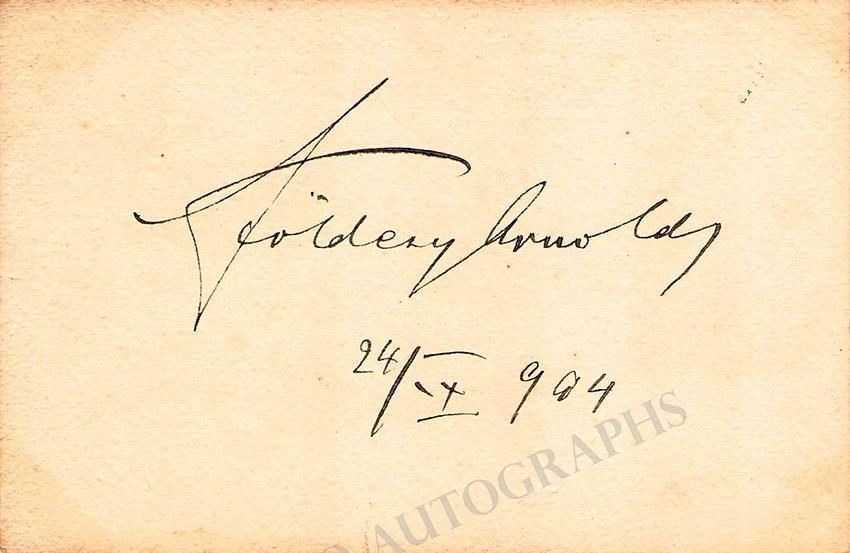 Földesy Arnold
24/IX 904
AUTOGRAPHS